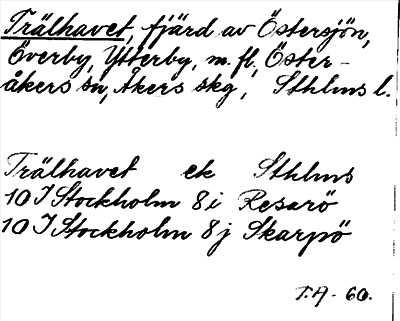 Trälhavet, fjärd av Östersjön,
Överby, Ytterby, m. fl., Öster-
åkers sn, Åkers skg, Sthlms l.
Trälhavet ek Sthlms
10 I Stockholm 8 i Resarö
10 I Stockholm 8 j Skarpö
T.A - 60.